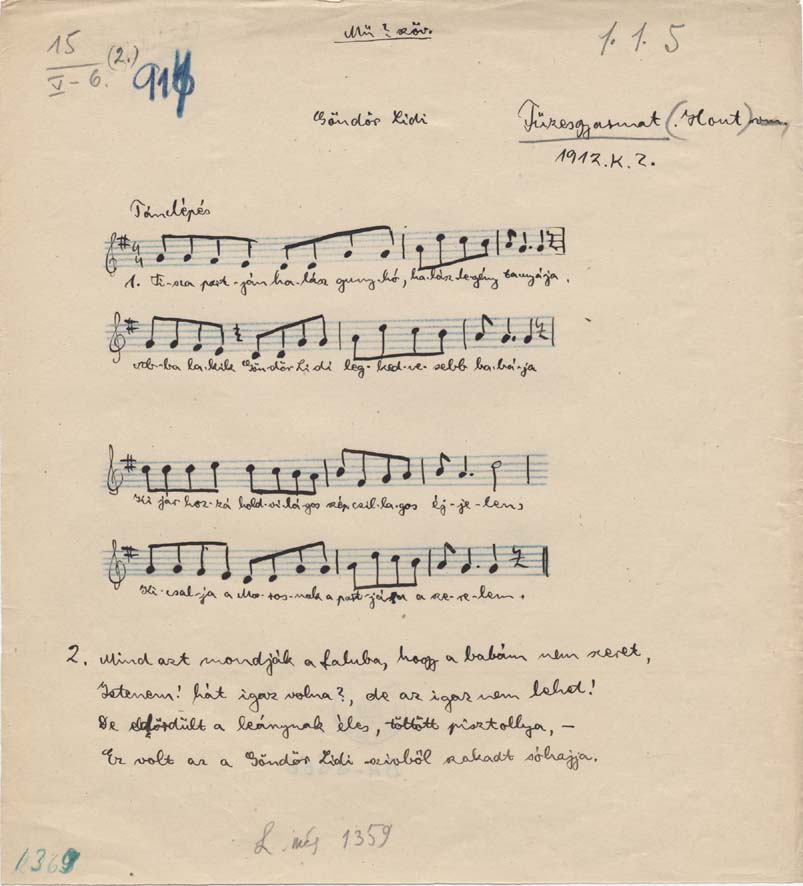 Mű? szöv.
15
V-6. (2.)
1. 1. 5
Göndör Lidi
Füzesgyarmat (Hont)
1912. K. Z.
Tánclépés
1. Ti-sza part-ján ha-lász guny-hó, ha-lász-le-gény ta-nyá-ja.
ab-ba la-kik Göndör Li di leg-ked-ve-sebb ba-bá-ja
Ki jár hoz-zá hold-vi-lá-gos szép csil-la-gos éj-je-len,
Ki-csal-ja a Ma-ros-nak a part-jára a sze-re-lem.
2. Mind azt mondják a faluba, hogy a babám nem szeret,
Istenem! hát igaz volna?, de az igaz nem lehet!
De elfördült a leánynak éles, töltött pisztollya, –
Ez volt az a Göndör Lidi szivből szakadt sóhajja.
L. még 1359